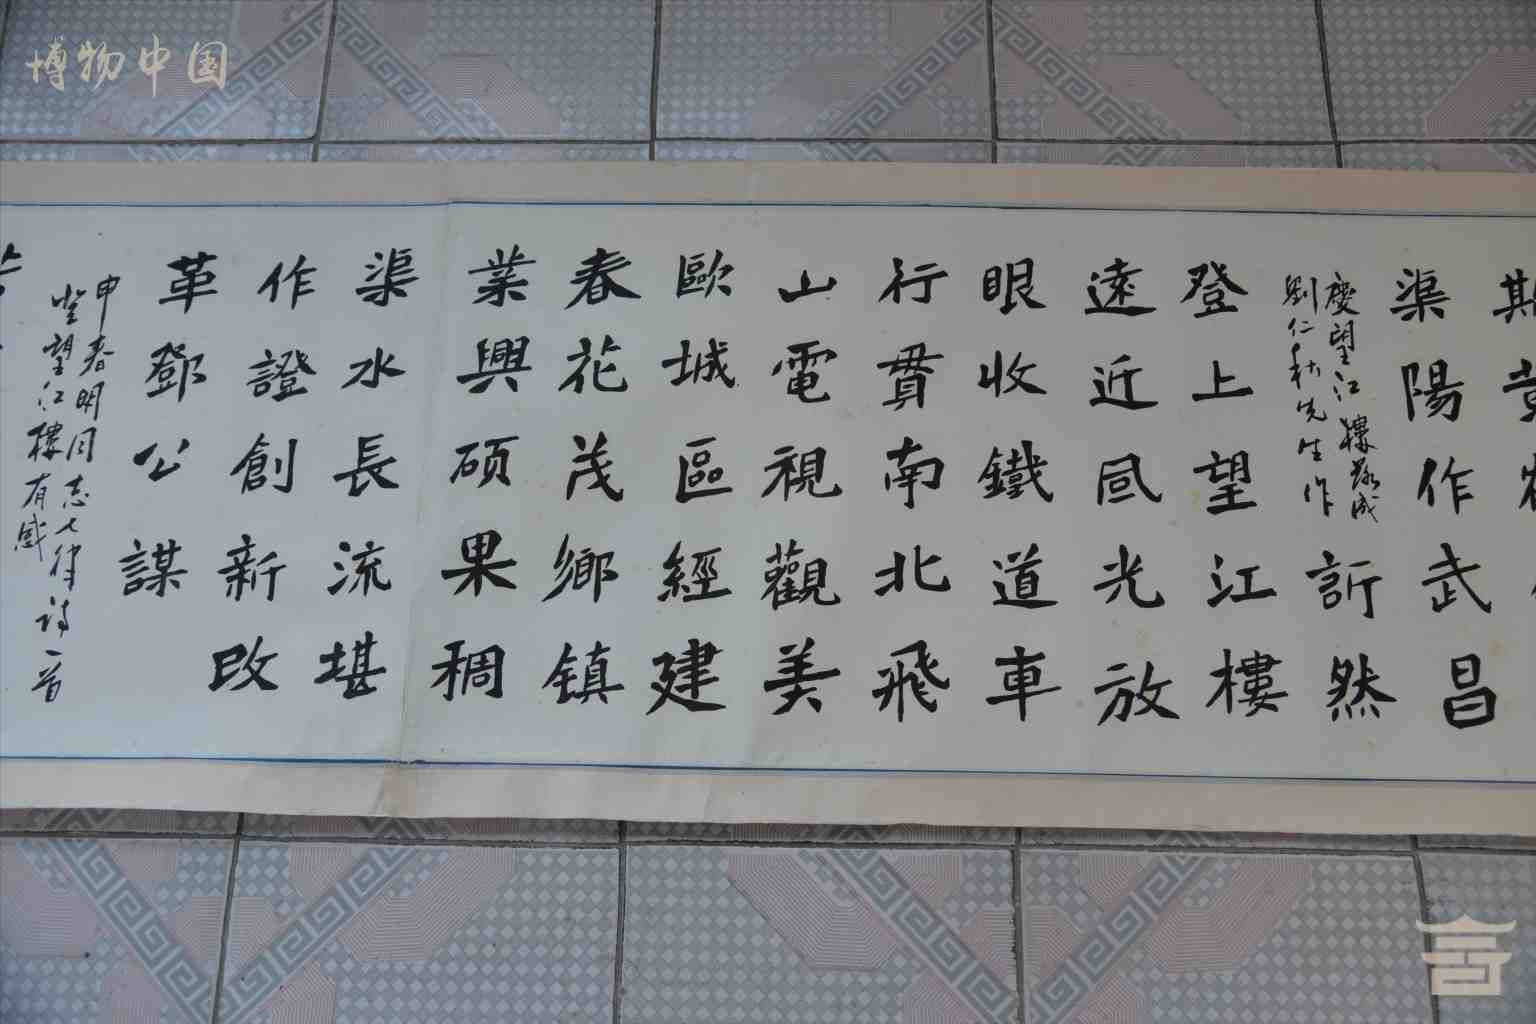 博物中国
斯黄
渠陽作武昌
訢然
慶望江樓落成
劉仁秋先生作
登上望江樓
遠近风光放
眼收鐵道車
行貫南北飛
山電視觀美
歐城區經建
春花茂鄉镇
業興硕果稠
渠水長流堪
作證創新改
革鄧公謀
申春明同志七律诗一首
登望江樓有感